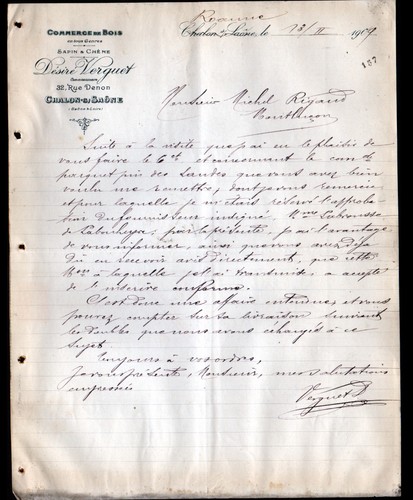 Roanne
COMMERCE DE BOIS
en tous Genres
SAPIN & CHÊNE
Désiré Verguet
32, Rue Denon
CHALON-S/SAÔNE
(SAÔNE & LOIRE)
Chalon-s/-Saône, le 13/II 1909
187
Monsieur Michel Rigaud
Montluçon
Suite à la visite que j'ai eu le plaisir de
vous faire le 6 ct et concernant le
parquet pin des Landes que vous avez bien
voulu me remettre, dont je vous remercie
et pour laquelle je m'étais réservé l'approba-
tion du fournisseur Mrs Labrousse
de par la présente, j'ai l'avantage
de vous informer, ainsi que vous avez déjà
dû en recevoir avis directement, que cette
Mon à laquelle je l'ai transmise, a accepté
de l'inscrire conforme.
C'est donc une affaire entendue, et vous
pouvez compter sur sa livraison suivant
les doubles que nous avons échangés à ce
sujet
Toujours à vos ordres,
Je vous présente, Monsieur, mes salutations
empressées
Verguet D